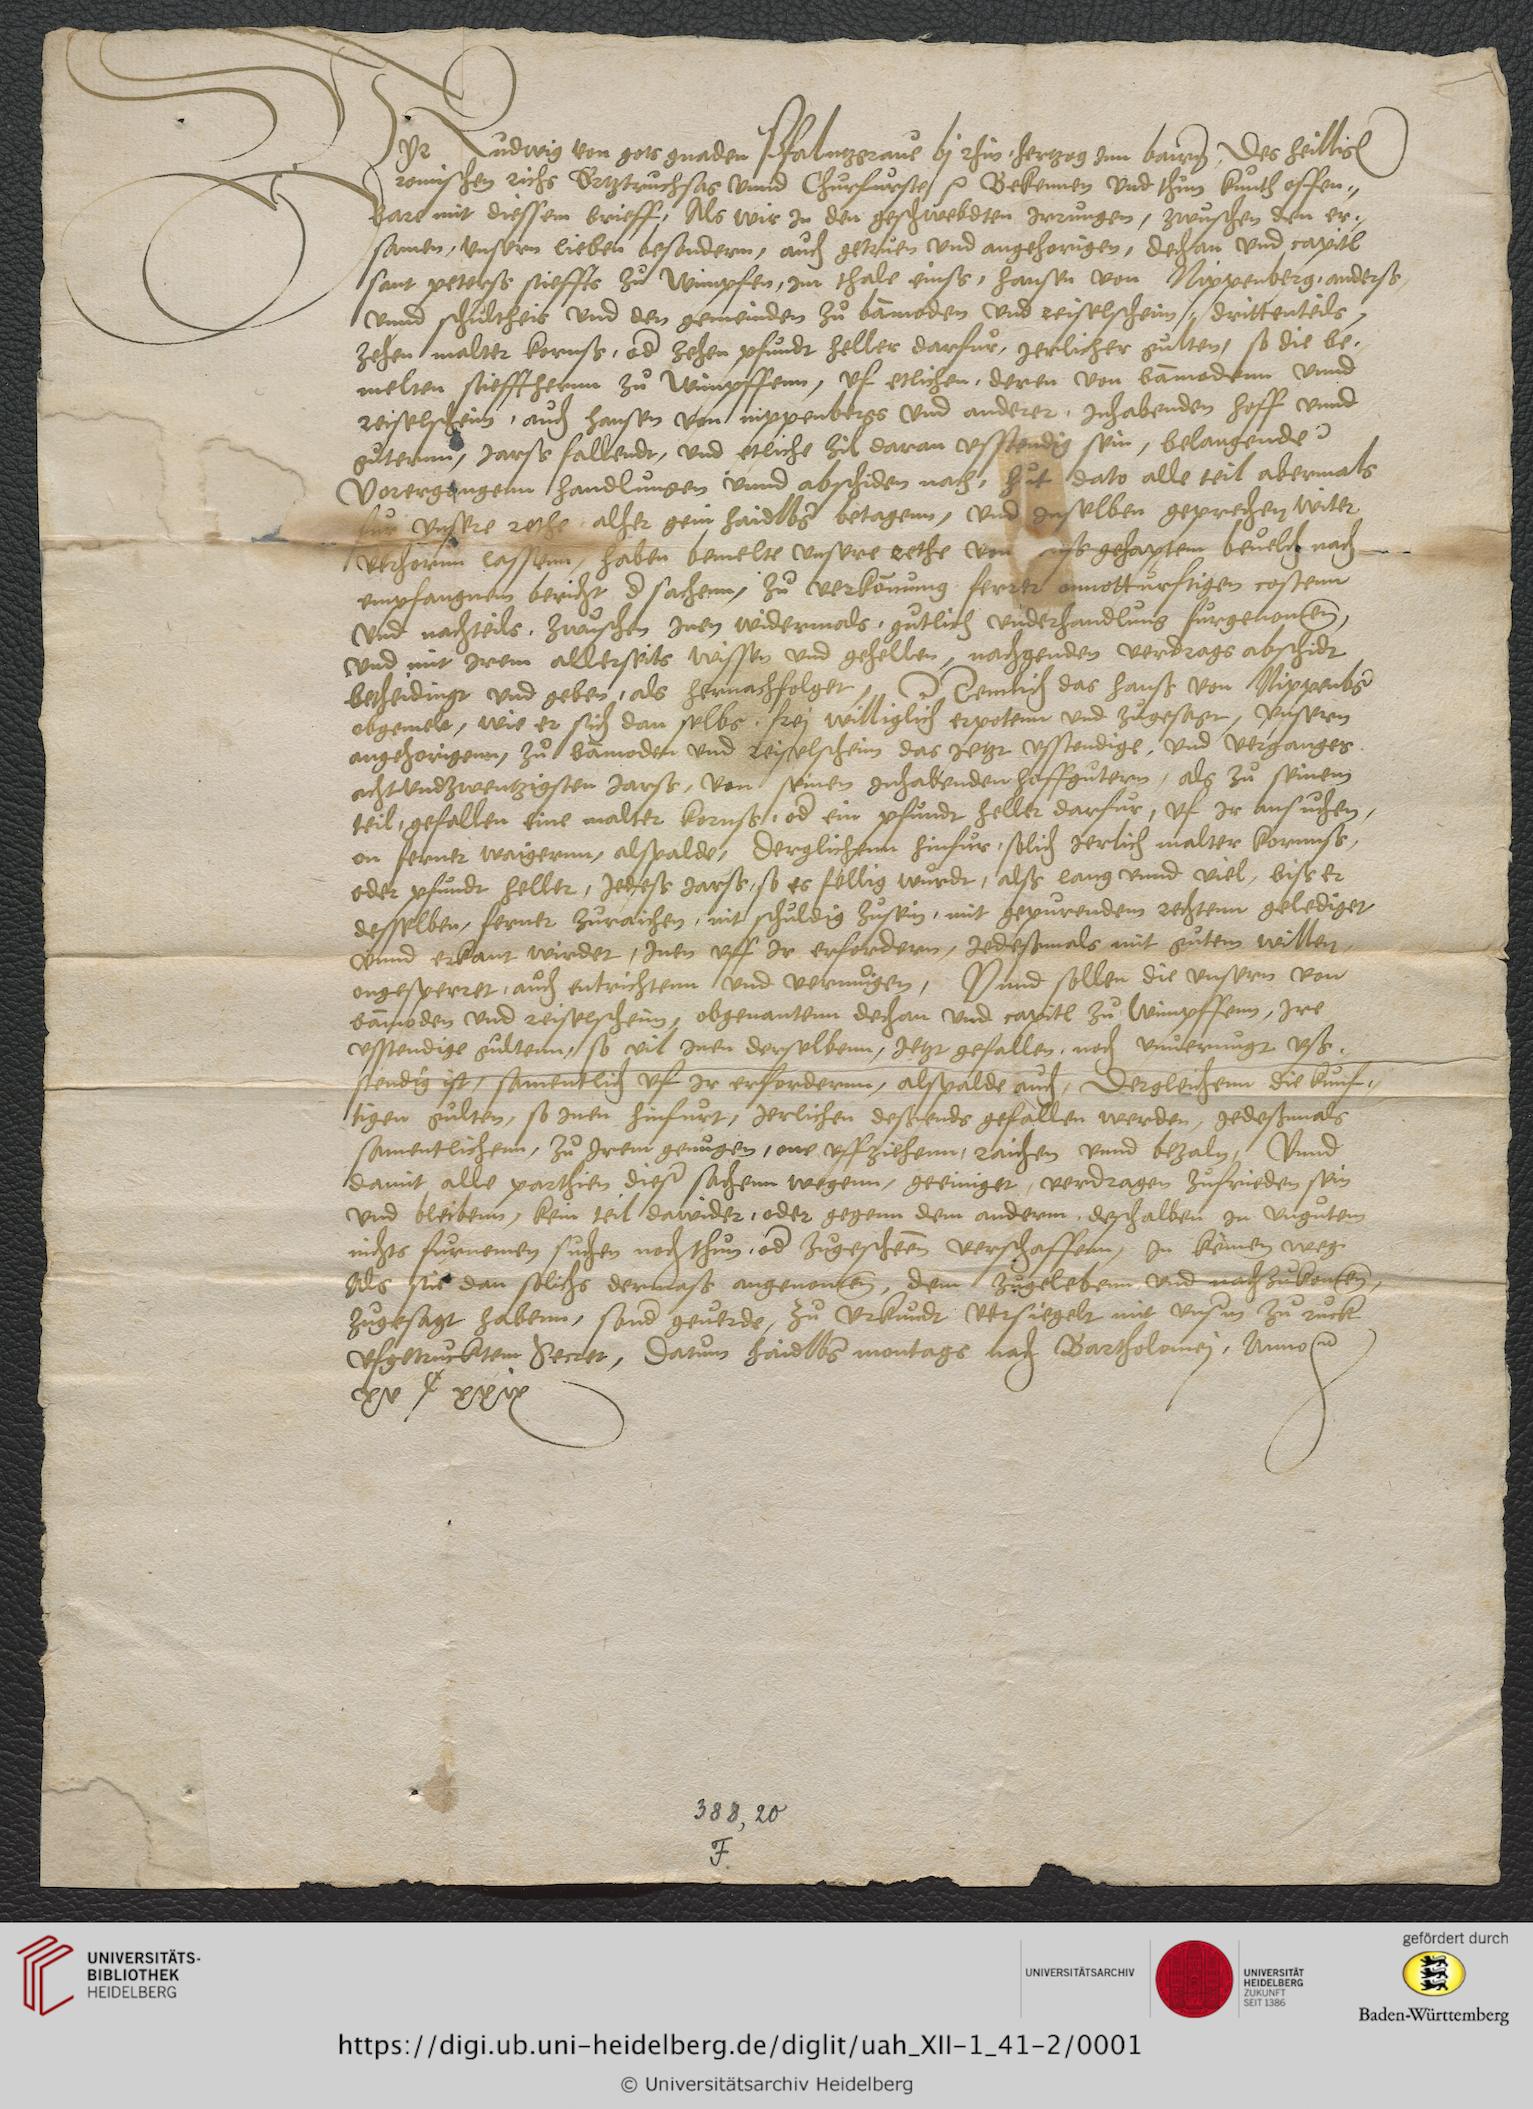 Wyr Ludwig von gots gnaden Pfaltzgraue bj rhin hertzog Inn bairn, Des heilligen
romischen richs Ertztruchsas vnnd Churfurste Bekennen vnd thun kunth offen-
bare mit diessem brieff, Als wir in den geschwebdten Irrungen, zwuschen den er-
samen, vnsern lieben besondern, auch getruen vnd angehorigen, dechan vnd capitl
sant peterss stieffts zu Wimpfen, im thale einss, hansen von Nippenberg, anderss,
vnnd schultheis vnd den gemeinden zu bamoden vnd reiselscheim, drittenteils,
zehen malter kornss, od zehen pfundt heller darfur, Jerlicher gulten, so die be-
melten stieffthernn zu Wimpffenn, vf etlichen, deren von bamodenn vnnd
reiselscheim, auch hansen von nippenbergs vnd anderer, Inhabenden hoff vnnd
guternn, Jarss fallendt, vnd etliche zil daran vsstendig sein, belangende
Vorergangenn handlungen vnnd abschiden nach, hut dato alle teil abermals
fur vnsere rethe alher gein haidlbg betagenn, vnd Inselben geprechen witer
verhornn lassenn, haben bemelte vnsere rethe von vnss gehaptem beuelch nach
empfangnem bericht d sachenn, zu verkomung ferrer onnotturftigen costenn
vnd nachteils, zwuschen Inen widermals, gutlich vnderhandlung furgenomen,
vnd mit Irem allerseits wissen vnd gehellen, nachgenden verdrags abschidt
betheidingt vnd geben, als hernachfolget, Nemlich das hanss von Nippenbg
obgemelt, wie er sich dan selbs, frej williglich erpotenn vnd zugesagt, vnsern
angehorigenn, zu bamoden vnd reiselscheim das Jetzt vsstendige, vnd verganges
achtvndzwentzigsten Jarss, von seinen Inhabenden hoffgutern, als zu seinem
teil, gefallen eine malter kornss, od ein pfundt heller darfur, vf Ir ansuchen,
on ferner waigernn, alspalde, Derglichenn hinfur, solich Jerlich malter kornnss,
oder pfundt heller, Jedess Jarss, so es fellig wurdt, alss lang vnnd viel, biss er
desselben, ferner zuraichen, nit schuldig zusein, mit gepurendem rechtenn gelediget
vnnd erkant wirdet, Inen vff Ir erfordern, Jedessmals mit gutem willen,
ongesperret, auch entrichtenn vnd vernugen, Vnnd sollen die vnsern von
bamoden vnd reiselscheim, obgenantenn dechan vnd capitl zu Wimpffenn, Ire
vsstendige gultenn, so vil Inen derselbenn, Jetzt gefallen, noch vnuernugt vss-
stendig ist, samentlich vf Ir erfordernn, alspalde auch, Dergleichenn die kunf-
tigen gulten, so Inen hinfurt, Jerlichen dessends gefallen werden, Jedessmals
samentlichenn, zu Irem genugen, one vffziehenn, raichen vnnd bezaln, Vnnd
damit alle parthien dieser sachenn wegenn, geeiniget, verdragen zufrieden sein
vnd bleibenn, kein teil dawider, oder gegenn dem anderm, deshalben in vngutem
nichts furnemen suchen noch thun, od zugescheen verschaffenn, in keinen weg.
Als sie dan solichs dermass angenomen, dem zugelebenn vnd nachzukomen,
zugesagt habenn, sond geuerde, Zu vrkundt versiegelt mit vnsm zu ruck
vfgetrucktem Secret, Datum haidlbg montags nach Bartholomej, Anno
xv c xxix
388,20
F.
UNIVERSITÄTS-
BIBLIOTHEK
HEIDELBERG
UNIVERSITÄTSARCHIV
UNIVERSITÄT
HEIDELBERG
ZUKUNFT
SEIT 1386
gefördert durch
Baden-Württemberg
https://digi.ub.uni-heidelberg.de/diglit/uah_XII-1_41-2/0001
© Universitätsarchiv Heidelberg